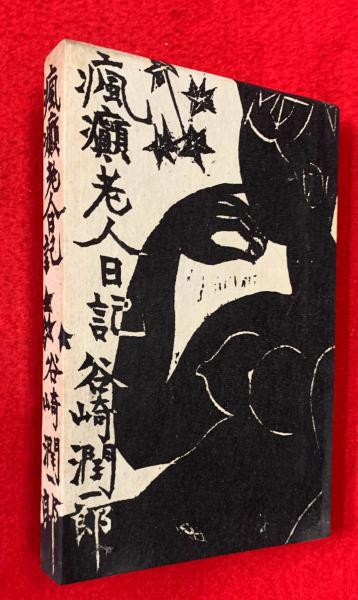 瘋癲老人日記
谷崎潤一郎
瘋癲老人日記
谷崎潤一郎